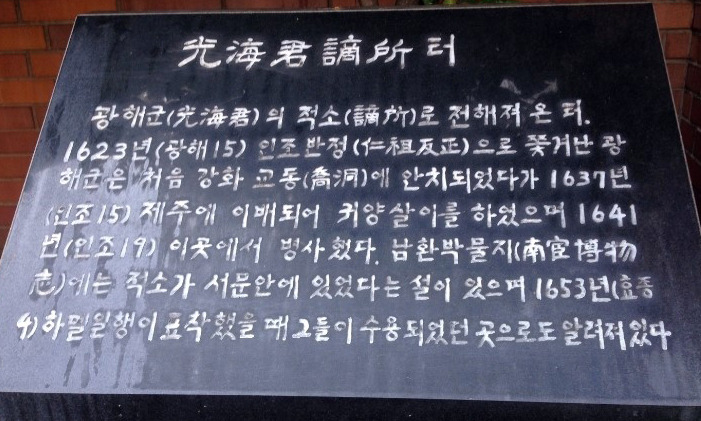 光海君謫所터
광해군(光海君)의 적소(謫所)로 전해져 온 터.
1623년(광해15) 인조반정(仁祖反正)으로 쫓겨난 광
해군은 처음 강화 교동(喬洞)에 안치되었다가 1637년
(인조15) 제주에 이배되어 귀양살이를 하였으며 1641
년(인조19) 이곳에서 병사했다. 남환박물지(南宦博物
志)에는 적소가 서문안에 있었다는 설이 있으며 1653년(효종
4)하멜일행이 표착했을 때 그들이 수용되었던 곳으로도 알려져있다